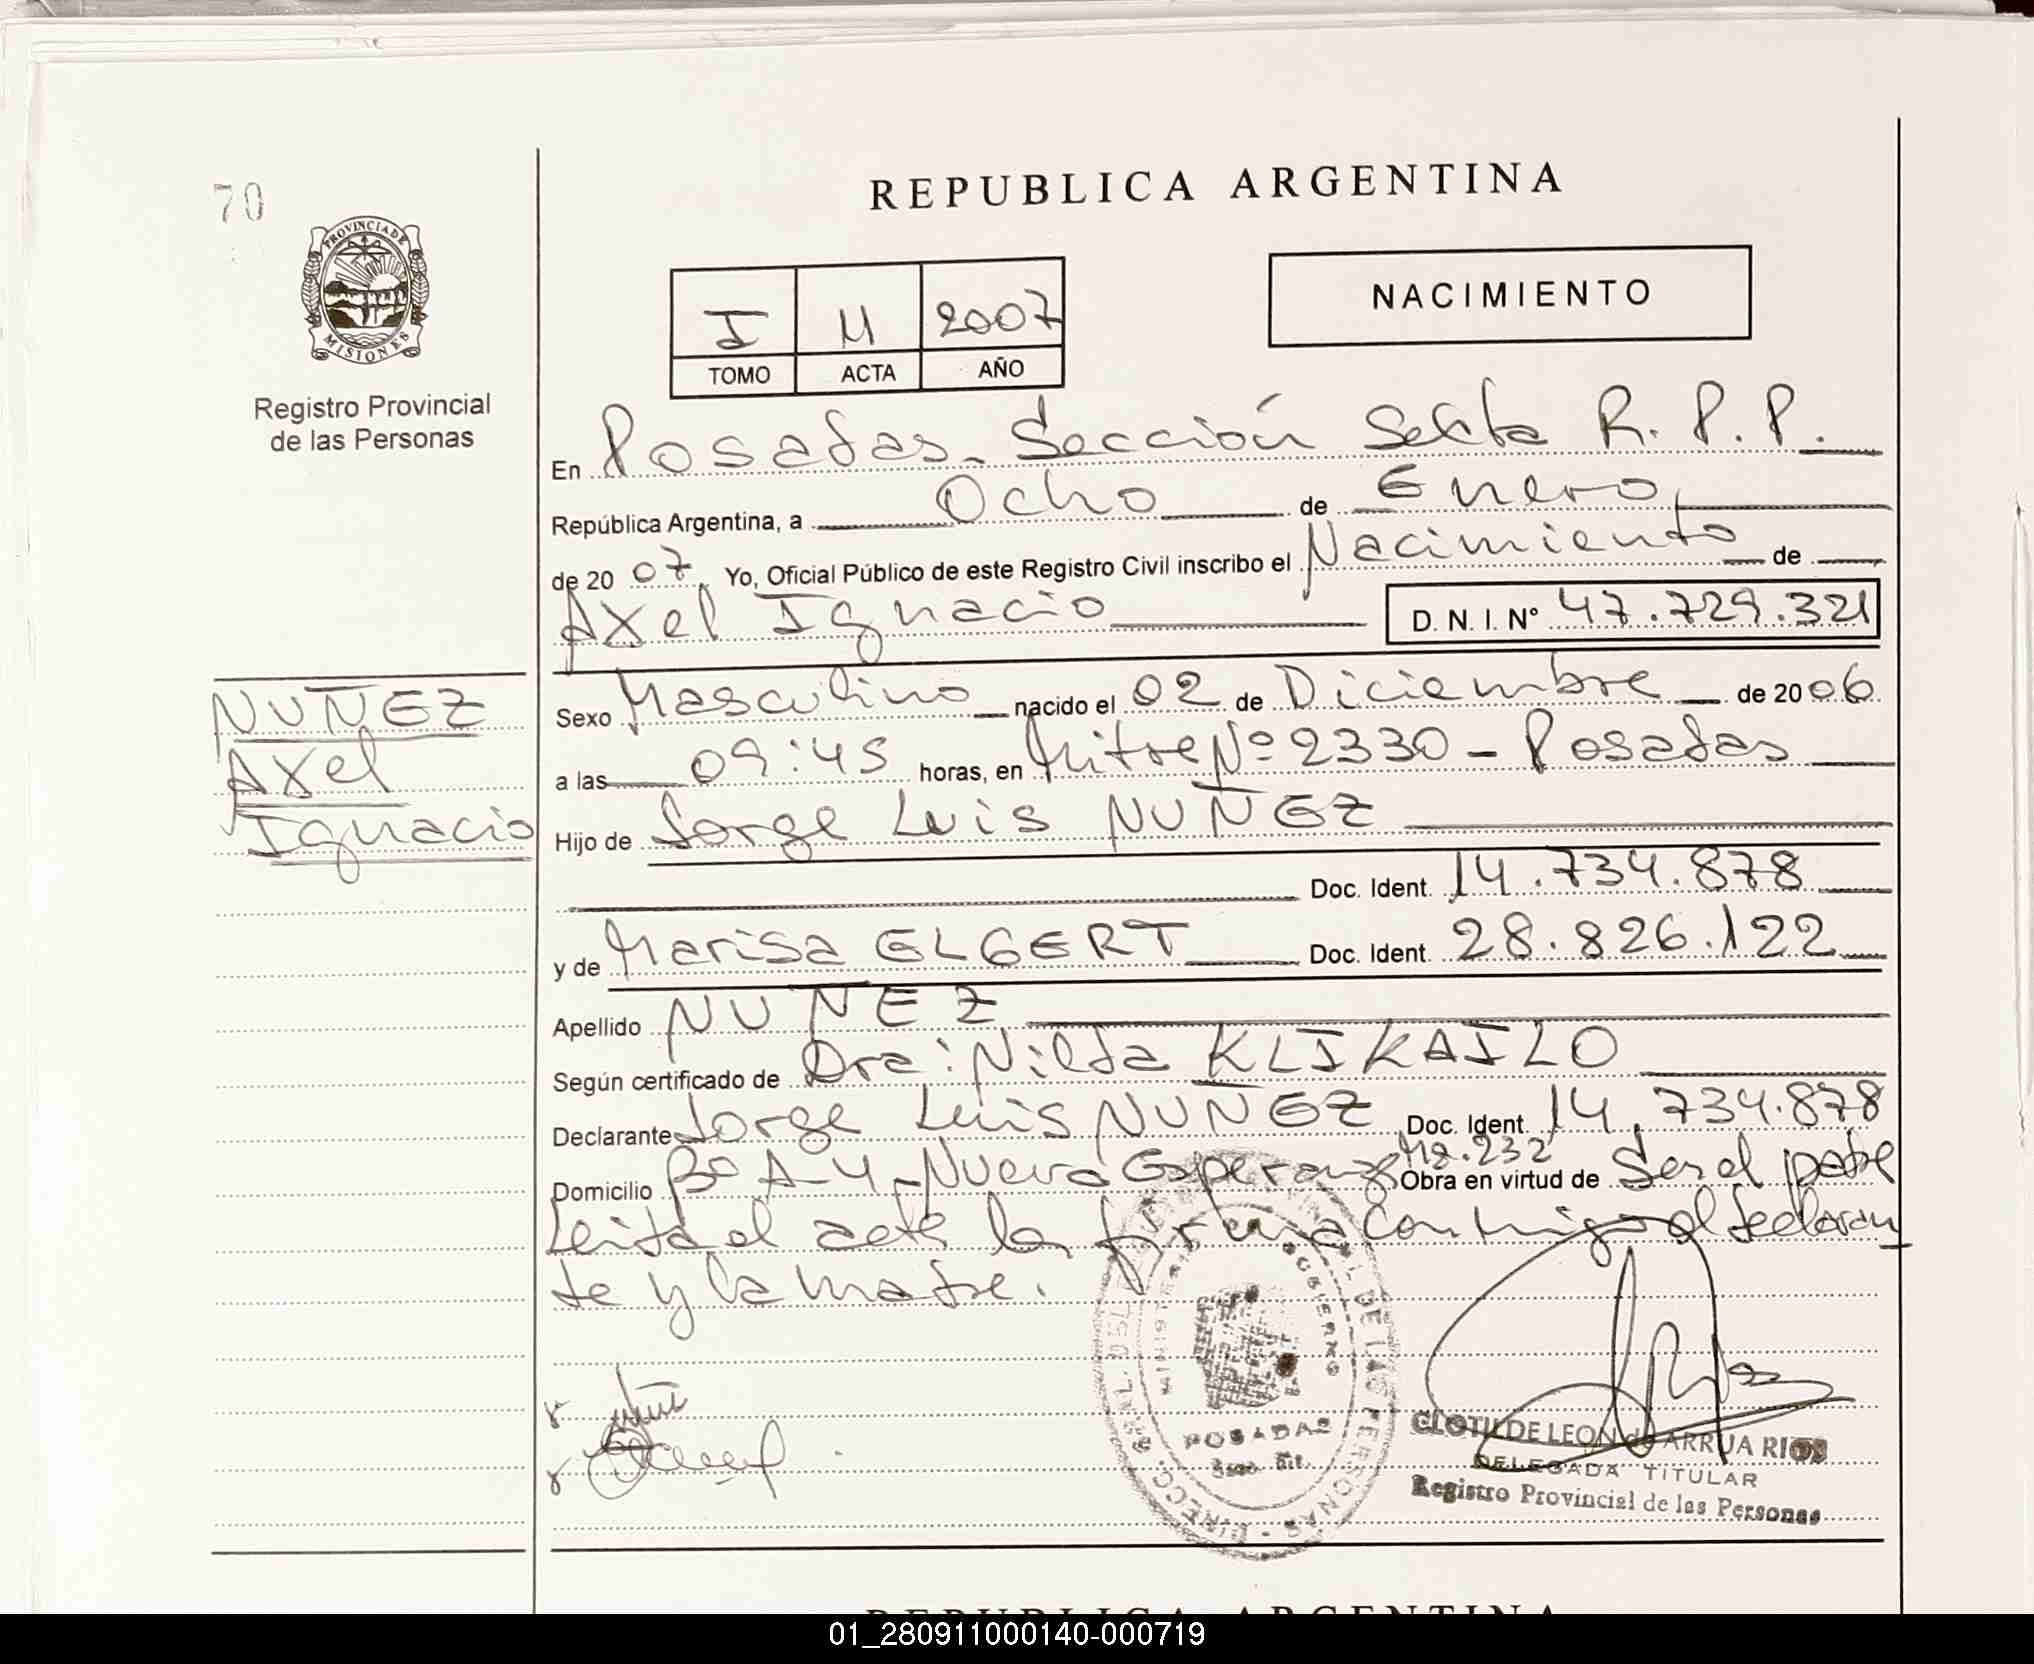 70
PROVINCIA DE
MISIONES
Registro Provincial
de las Personas
REPUBLICA ARGENTINA
I 11 2007
TOMO ACTA AÑO
NACIMIENTO
En Posadas - Sección Sexta R. P. P.
República Argentina, a Ocho de Enero
de 20 07. Yo, Oficial Público de este Registro Civil inscribo el Nacimiento de
Axel Ignacio D. N. I. Nº 47.729.321
NUÑEZ
Axel
Ignacio
Sexo Masculino nacido el 02 de Diciembre de 2006
a las 09:45 horas, en Mitre Nº 2330 - Posadas
Hijo de Jorge Luis NUÑEZ
Doc. Ident. 14.734.878
y de Marisa ELGERT Doc. Ident. 28.826.122
Apellido NUÑEZ
Según certificado de Dra: Nilda KLIKAILO
Declarante Jorge Luis NUÑEZ Doc. Ident. 14.734.878
Domicilio Bº A-4 - Nueva Esperanza Mz. 232 Obra en virtud de Ser el padre
Leida el acta la firma conmigo el declaran
te y la madre.
MINISTERIO GOBIERNO
POSADAS
CLOTILDE LEON de ARRUA RIOS
DELEGADA TITULAR
Registro Provincial de las Personas
REPUBLICA ARGENTINA
01_280911000140-000719